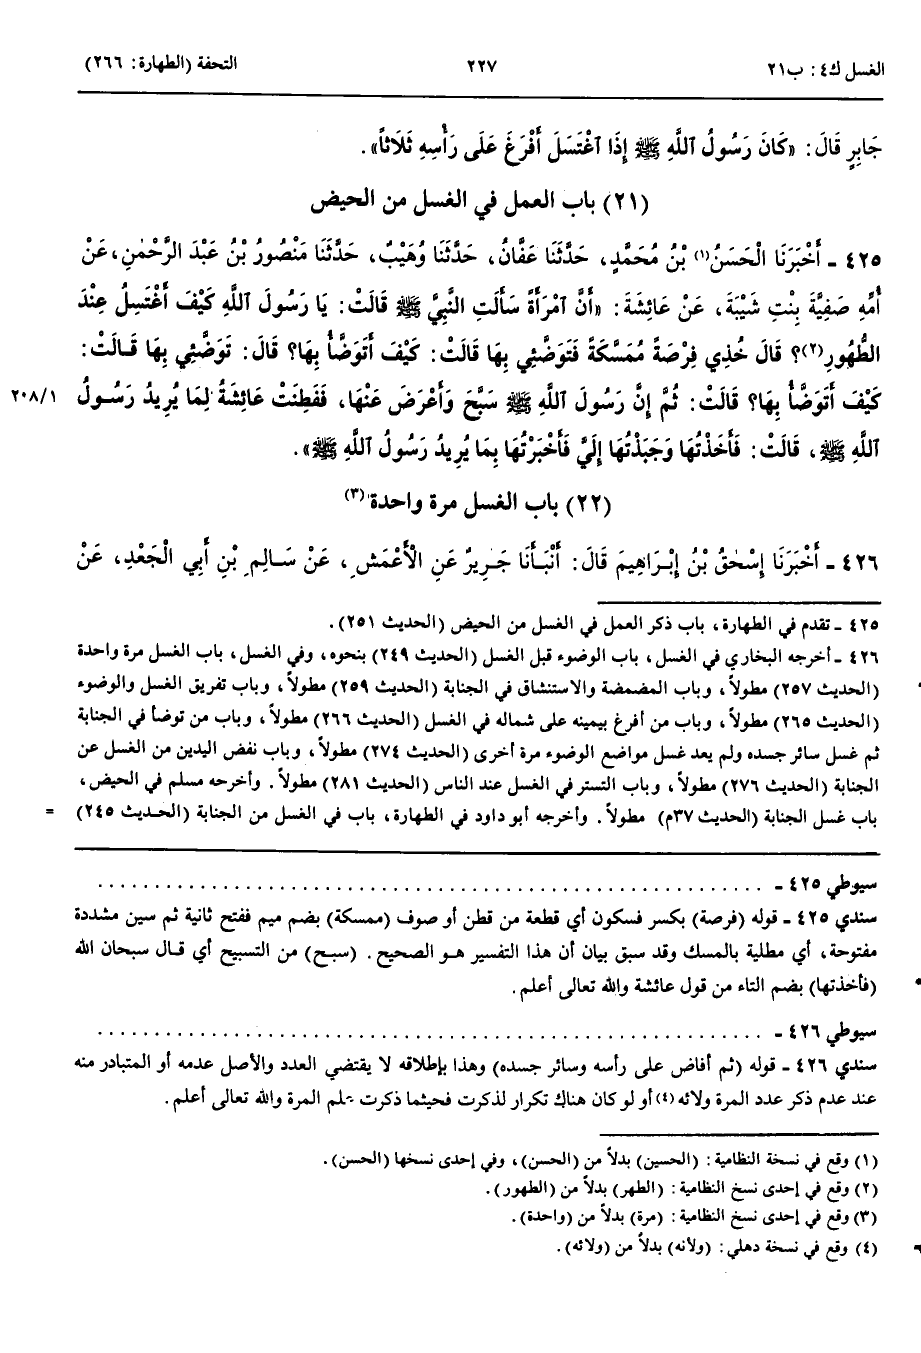 الغسل ك٤: ب٢١ ٢٢٧ التحفة (الطهارة: ٢٦٦)
جَابِرٍ قَالَ: «كَانَ رَسُولُ ٱللَّهِ ﷺ إِذَا ٱغْتَسَلَ أَفْرَغَ عَلَى رَأْسِهِ ثَلَاثاً».
(٢١) باب العمل في الغسل من الحيض
٤٢٥ ـ أَخْبَرَنَا الْحَسَنُ(١) بْنُ مُحَمَّدٍ، حَدَّثَنَا عَفَّانُ، حَدَّثَنَا وُهَيْبٌ، حَدَّثَنَا مَنْصُورُ بْنُ عَبْدَ الرَّحْمٰنِ، عَنْ
أُمِّهِ صَفِيَّةَ بِنْتِ شَيْبَةَ، عَنْ عَائِشَةَ: «أَنَّ ٱمْرَأَةً سَأَلَتِ النَّبِيَّ ﷺ قَالَتْ: يَا رَسُولَ ٱللَّهِ كَيْفَ أَغْتَسِلُ عِنْدَ
الطُّهُورِ(٢)؟ قَالَ خُذِي فِرْصَةً مُمَسَّكَةً فَتَوَضَّئِي بِهَا قَالَتْ: كَيْفَ أَتَوَضَّأُ بِهَا؟ قَالَ: تَوَضَّئِي بِهَا قَـالَتْ:
كَيْفَ أَتَوَضَّأُ بِهَا؟ قَالَتْ: ثُمَّ إِنَّ رَسُولَ ٱللَّهِ ﷺ سَبَّحَ وَأَعْرَضَ عَنْهَا، فَفَطِنَتْ عَائِشَةُ لِمَا يُرِيدُ رَسُـولُ ٢٠٨/١
ٱللَّهِ ﷺ، قَالَتْ: فَأَخَذْتُهَا وَجَبَذْتُهَا إِلَيَّ فَأَخْبَرْتُهَا بِمَا يُرِيدُ رَسُولُ ٱللَّهِ ﷺ».
(٢٢) باب الغسل مرة واحدة(٣)
٤٢٦ ـ أَخْبَرَنَا إِسْحٰقُ بْنُ إِبْـرَاهِيمَ قَالَ: أَنْبَـأَنَا جَرِيرٌ عَنِ الْأَعْمَشِ، عَنْ سَـالِمِ بْنِ أَبِي الْجَعْدِ، عَنْ
٤٢٥ ـ تقدم في الطهارة، باب ذكر العمل في الغسل من الحيض (الحديث ٢٥١).
٤٢٦ ـ أخرجه البخاري في الغسل، باب الوضوء قبل الغسل (الحديث ٢٤٩) بنحوه، وفي الغسل، باب الغسل مرة واحدة
(الحديث ٢٥٧) مطولاً، وباب المضمضة والاستنشاق في الجنابة (الحديث ٢٥٩) مطولاً، وباب تفريق الغسل والوضوء
(الحديث ٢٦٥) مطولاً، وباب من أفرغ بيمينه على شماله في الغسل (الحديث ٢٦٦) مطولاً، وباب من توضأ في الجنابة
ثم غسل سائر جسده ولم يعد غسل مواضع الوضوء مرة أخرى (الحديث ٢٧٤) مطولاً، وباب نفض اليدين من الغسل عن
الجنابة (الحديث ٢٧٦) مطولاً، وباب التستر في الغسل عند الناس (الحديث ٢٨١) مطولاً. وأخرجه مسلم في الحيض،
باب غسل الجنابة (الحديث ٣٧م) مطولاً. وأخرجه أبو داود في الطهارة، باب في الغسل من الجنابة (الحـديث ٢٤٥) =
سيوطي ٤٢٥ ـ . . . . . . . . . . . . . . . . . . . . . . . . . . . . . .
سندي ٤٢٥ ـ قوله (فرصة) بكسر فسكون أي قطعة من قطن أو صوف (ممسكة) بضم ميم ففتح ثانية ثم سين مشددة
مفتوحة، أي مطلية بالمسك وقد سبق بيان أن هذا التفسير هـو الصحيح. (سبـح) من التسبيح أي قـال سبحان الله
(فأخذتها) بضم التاء من قول عائشة والله تعالى أعلم.
سيوطي ٤٢٦ ـ . . . . . . . . . . . . . . . . . . . . . . . . . . . . . .
سندي ٤٢٦ ـ قوله (ثم أفاض على رأسه وسائر جسده) وهذا بإطلاقه لا يقتضي العدد والأصل عدمه أو المتبادر منه
عند عدم ذكر عدد المرة ولائه(٤) أو لو كان هناك تكرار لذكرت فحيثما ذكرت المرة والله تعالى أعلم.
(١) وقع في نسخة النظامية: (الحسين) بدلاً من (الحسن)، وفي إحدى نسخها (الحسن).
(٢) وقع في إحدى نسخ النظامية: (الطهر) بدلاً من (الطهور).
(٣) وقع في إحدى نسخ النظامية: (مرة) بدلاً من (واحدة).
(٤) وقع في نسخة دهلي: (ولأنه) بدلاً من (ولائه).